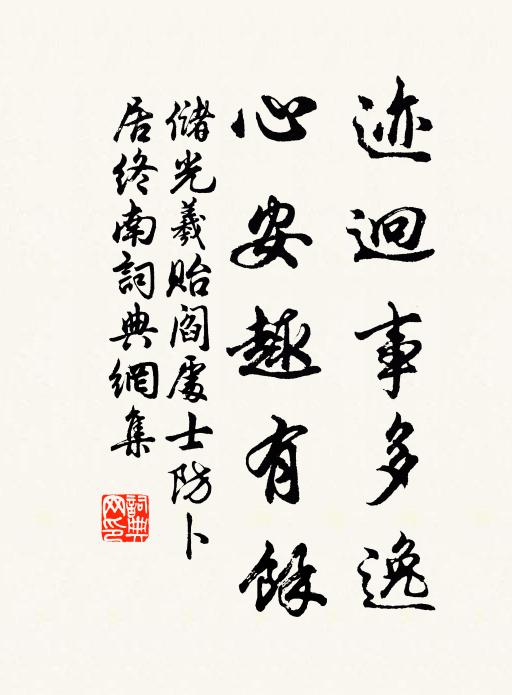 迹迥事多逸
心安趣有餘
儲光羲貽閻處士防卜
居終南詞典網集
詞典
网印